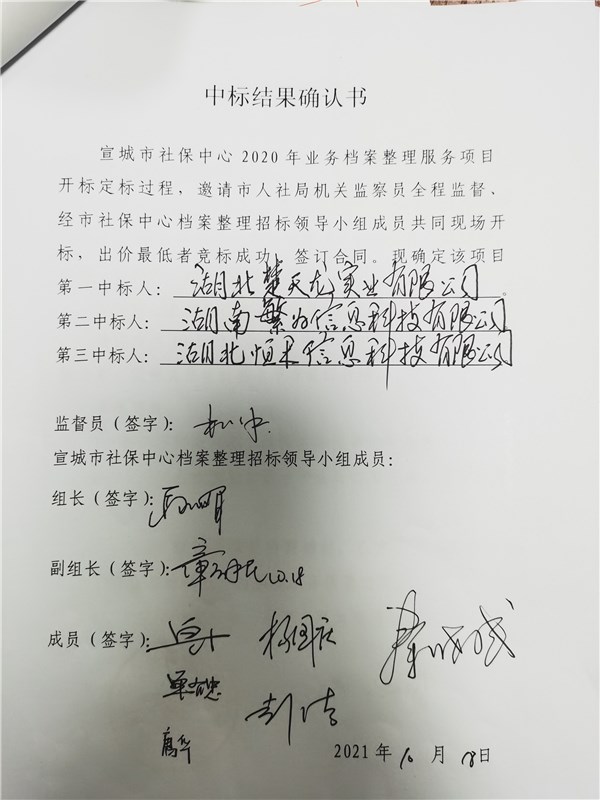 中标结果确认书
宣城市社保中心2020年业务档案整理服务项目
开标定标过程，邀请市人社局机关监察员全程监督、
经市社保中心档案整理招标领导小组成员共同现场开
标，出价最低者竞标成功，签订合同。现确定该项目
第一中标人：湖北楚天龙实业有限公司。
第二中标人：湖南繁为信息科技有限公司
第三中标人：湖北恒杲信息科技有限公司
监督员（签字）：
宣城市社保中心档案整理招标领导小组成员：
组长（签字）：
副组长（签字）：10.18
成员（签字）： 杨国庆
彭洁
2021年10月18日